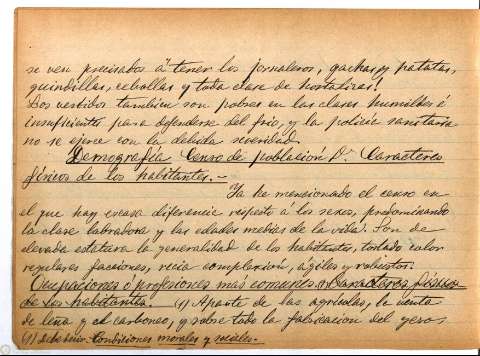 se ven precisados á tener los jornaleros, gachas y patatas,
guindillas, cebollas y toda clase de hortalizas.
Los vestidos tambien son pobres en las clases humildes é
insuficientes para defenderse del frio, y la policia sanitaria
no se ejerce con la debida severidad.
Demografía Censo de población Caracteres
físicos de los habitantes.-
Ya he mencionado el censo en
el que hay escasa diferencia respecto á los sexos, predominando
la clase labradora y las edades medias de la vida. Son de
elevada estatura la generalidad de los habitantes, tostado color
regulares facciones, recia complexión, ágiles y robustos.
Ocupaciones ó profesiones mas comunes Caracteres físicos
de los habitantes. (1) Aparte de las agrícolas, la venta
de leña y el carboneo, y sobre todo la fabricacion del yeso,
(1) debe decir Condiciones morales y sociales.